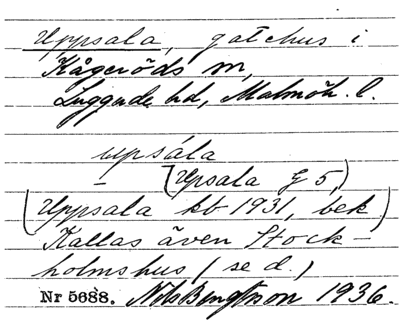 Uppsala, gatehus i
Kågeröds sn,
Luggude hd, Malmöh. l.
upsàla
(Upsala G 5,)
(Uppsala kb 1931, bek)
Kallas även Stock-
holmshus (se d.)
Nr 5688. Nils Bengtsson 1936.